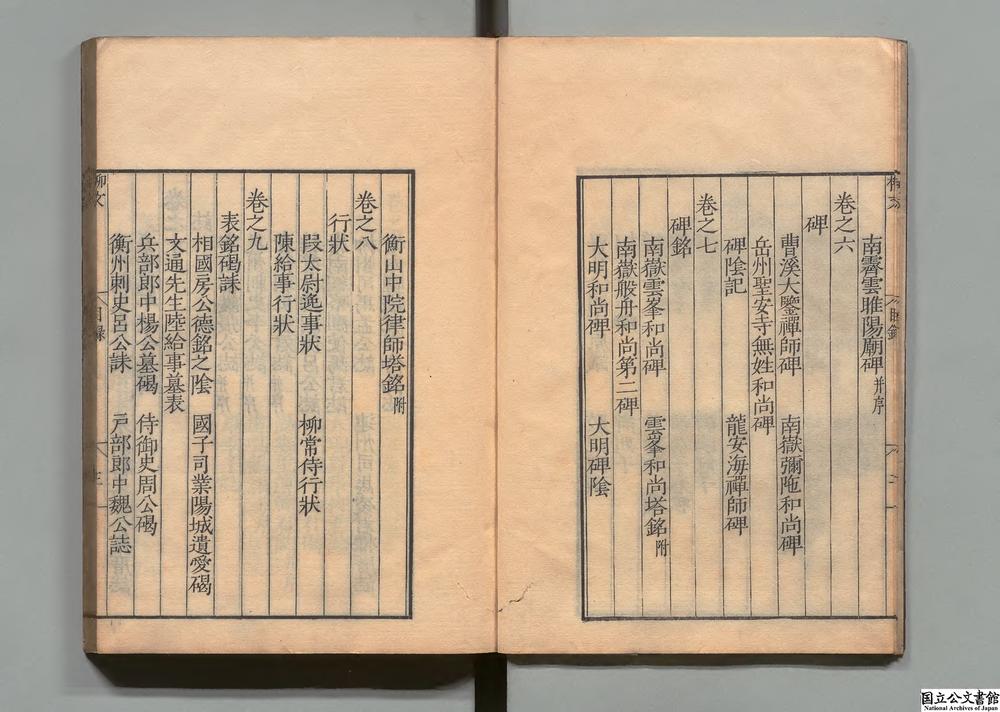 南霽雲睢陽廟碑 并序
卷之六
碑
曹溪大鑒禪師碑 南嶽彌陁和尚碑
岳州聖安寺無姓和尚碑
碑陰記 龍安海禪師碑
卷之七
碑銘
南嶽雲峯和尚碑 雲峯和尚塔銘 附
南嶽般舟和尚第二碑
大明和尚碑 大明碑陰
衡山中院律師塔銘 附
卷之八
行狀
段太尉逸事狀 柳常侍行狀
陳給事行狀
卷之九
表銘碣誄
相國房公德銘之陰 國子司業陽城遺愛碣
文通先生陸給事墓表
兵部郎中楊公墓碣 侍御史周公碣
衡州刺史呂公誄 戸部郎中魏公誌
柳文
目録
国立公文書館
National Archives of Japan